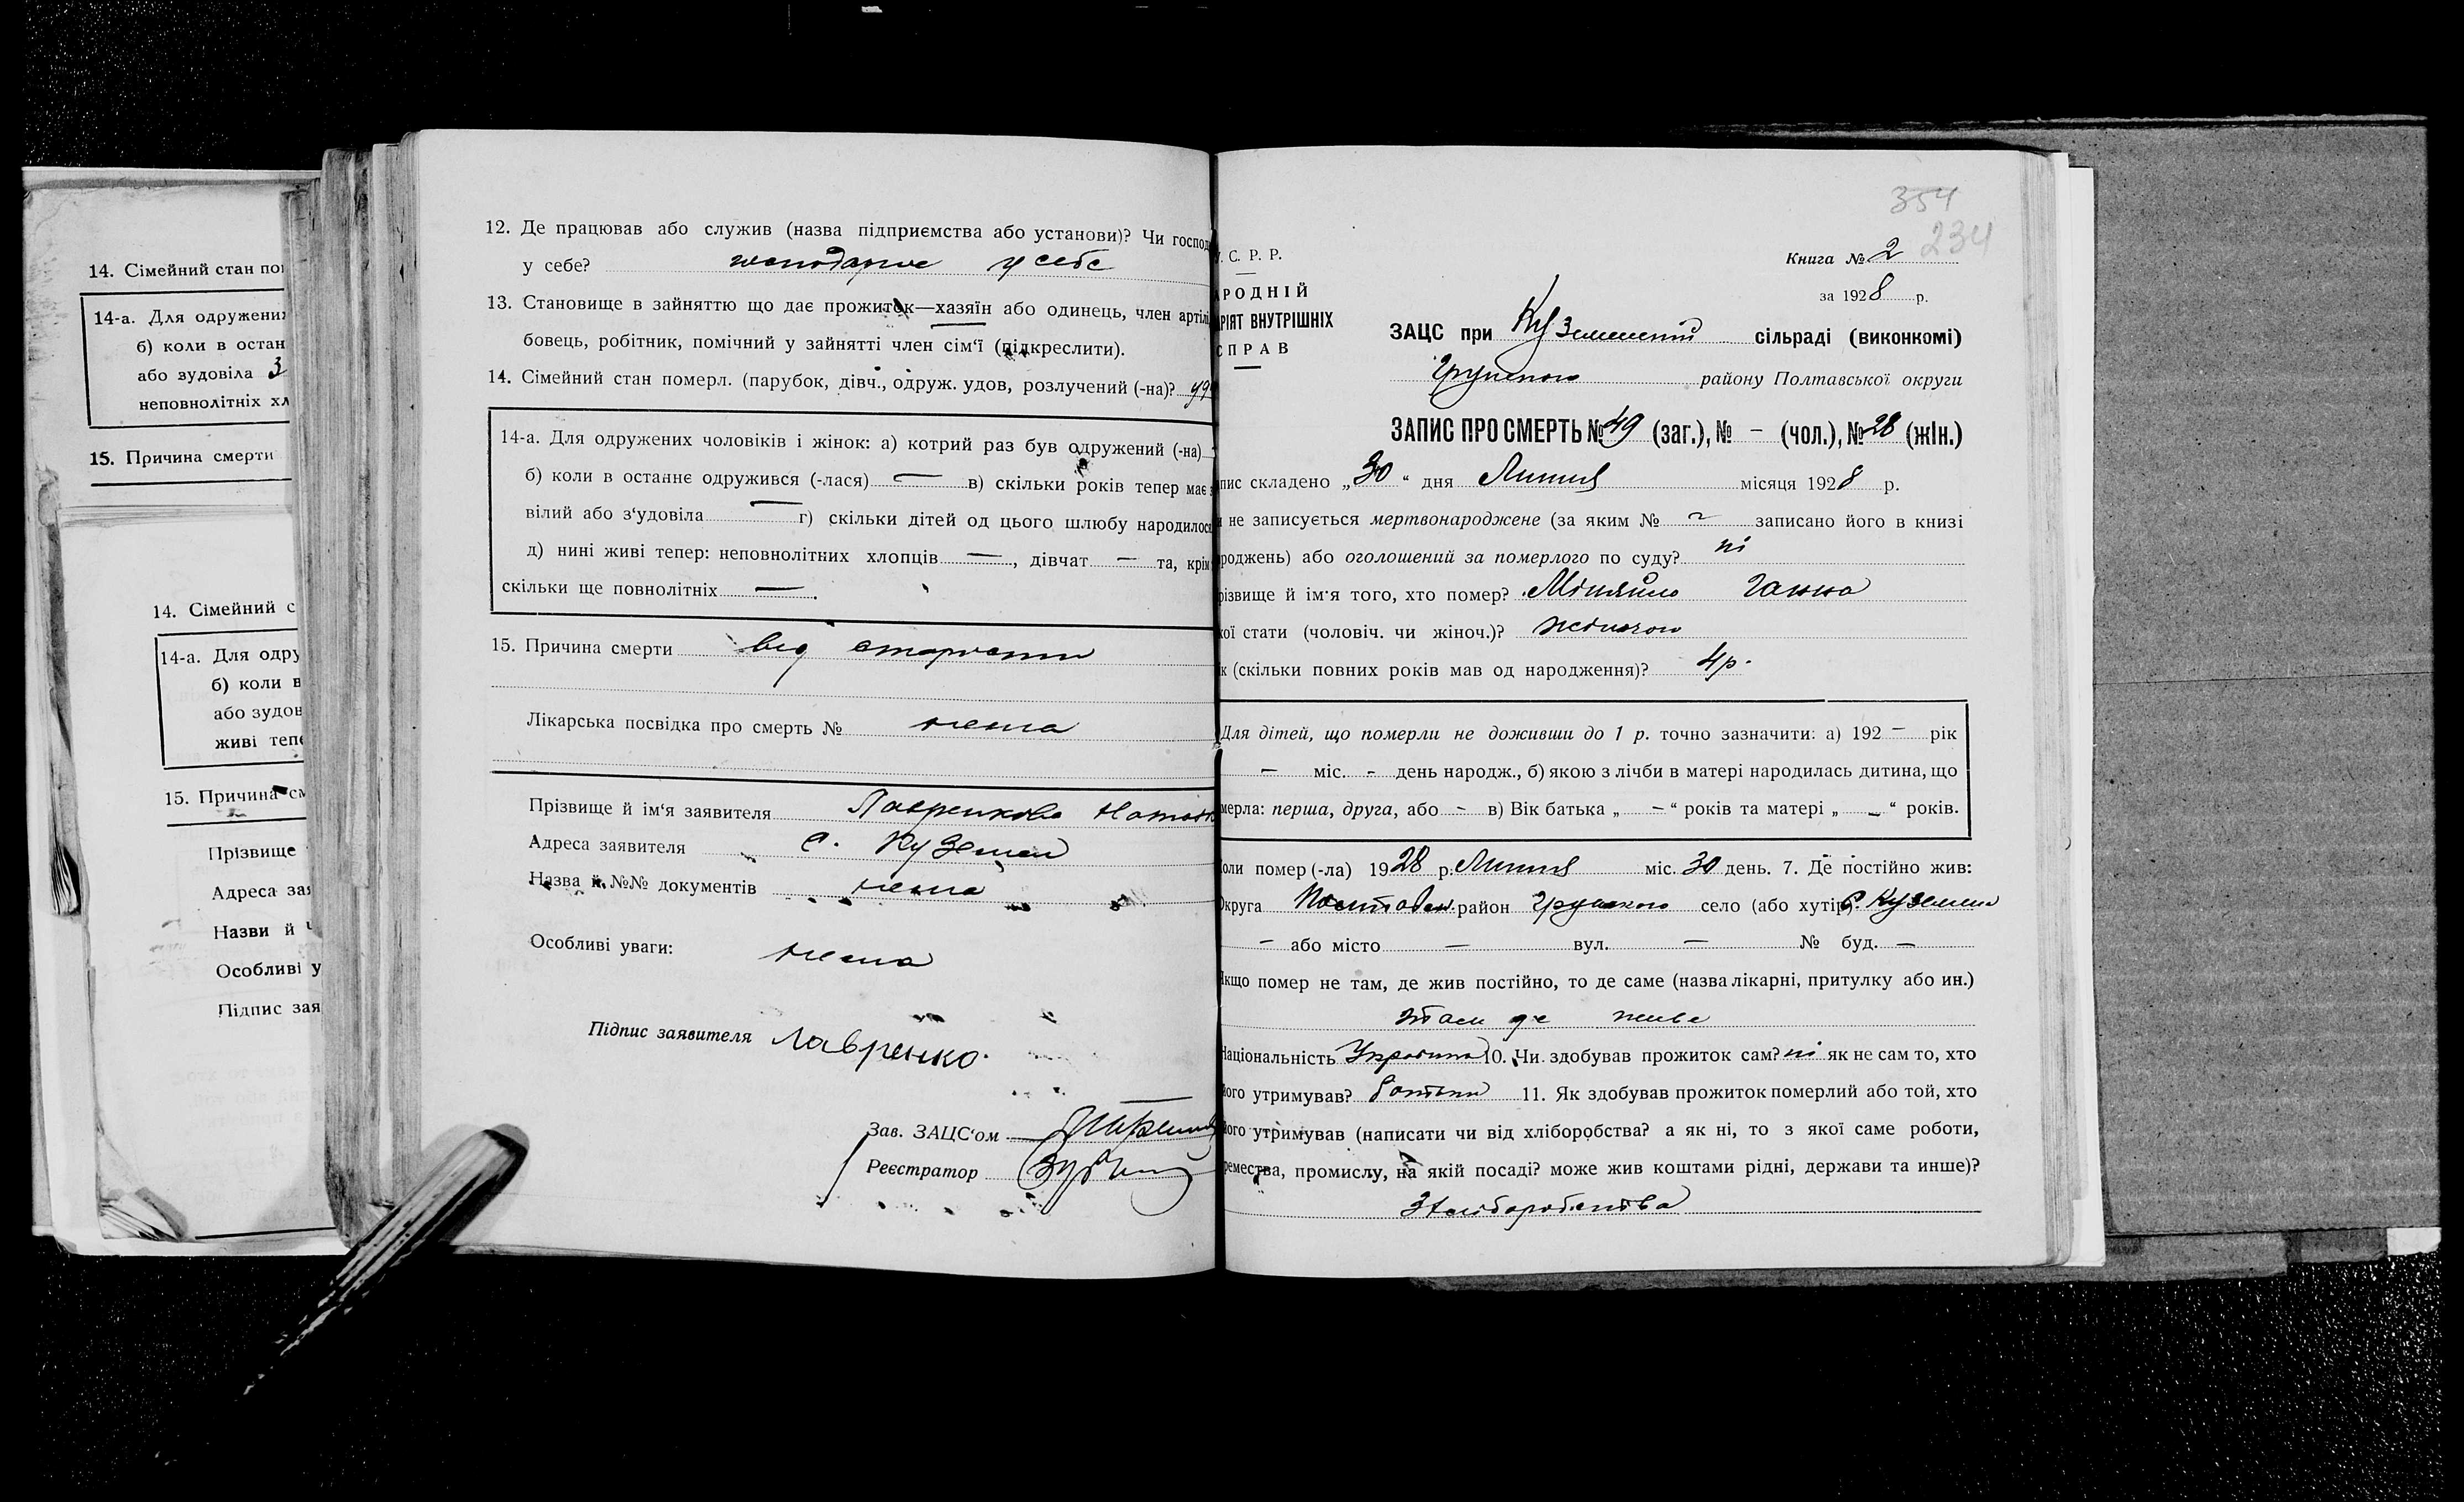 14. Сімейний стан по
14-а. Для одружених
б) коли в остан
або зудовіла 3
неповнолітніх хл
15. Причина смерти
14. Сімейний с
14-а. Для одру
б) коли в
або зудов
живі тепе
15. Причина см
Прізвище
Адреса зая
Назви й
Особливі у
Підпис зая
12. Де працював або служив (назва підприємства або установи)? Чи господ
у себе? господарює у себе
13. Становище в зайняттю що дає прожиток—хазяїн або одинець, член артілі
бовець, робітник, помічний у зайнятті член сім‘ї (підкреслити).
14. Сімейний стан померл. (парубок, дівч., одруж. удов, розлучений (-на)?
14-а. Для одружених чоловіків і жінок: а) котрий раз був одружений (-на)
б) коли в останнє одружився (-лася) — в) скільки років тепер має
вілий або з‘удовіла — г) скільки дітей од цього шлюбу народилося
д) нині живі тепер: неповнолітних хлопців —, дівчат — та, крім
скільки ще повнолітніх —.
15. Причина смерти від старости
Лікарська посвідка про смерть № нема
Прізвище й ім‘я заявителя Лавренкова
Адреса заявителя с. Куземен
Назва й №№ документів нема
Особливі уваги: нема
Підпис заявителя Лавренко.
Зав. ЗАЦС‘ом
Реєстратор
354
234
. С. Р. Р.
РОДНІЙ
РІЯТ ВНУТРІШНІХ
СПРАВ
Книга № 2
за 1928 р.
ЗАЦС при Куземенській сільраді (виконкомі)
Грунського району Полтавської округи
ЗАПИС ПРО СМЕРТЬ № 49 (заг.), № – (чол.), № 28 (жін.)
пис складено „30“ дня Липня місяця 1928 р.
не записується мертвонароджене (за яким № ~ записано його в книзі
роджень) або оголошений за померлого по суду? ні
різвище й ім‘я того, хто помер? Ганна
кої стати (чоловіч. чи жіноч.)? жіночої
к (скільки повних років мав од народження)? 4р.
Для дітей, що померли не доживши до 1 р. точно зазначити: а) 192 – рік
– міс. - день народж., б) якою з лічби в матері народилась дитина, що
мерла: перша, друга, або – в) Вік батька „ –“ років та матері „ –“ років.
оли помер (-ла) 1928 р. Липня міс. 30 день. 7. Де постійно жив:
округа Полтавськ. район Грунського село (або хутір) С. Куземен
– або місто — вул. — № буд. —
кщо помер не там, де жив постійно, то де саме (назва лікарні, притулку або ин.)
там де живе
аціональність Українка 10. Чи здобував прожиток сам? ні як не сам то, хто
ого утримував? батьки 11. Як здобував прожиток померлий або той, хто
ого утримував (написати чи від хліборобства? а як ні, то з якої саме роботи,
ремества, промислу, на якій посаді? може жив коштами рідні, держави та инше)?
З хліборобства